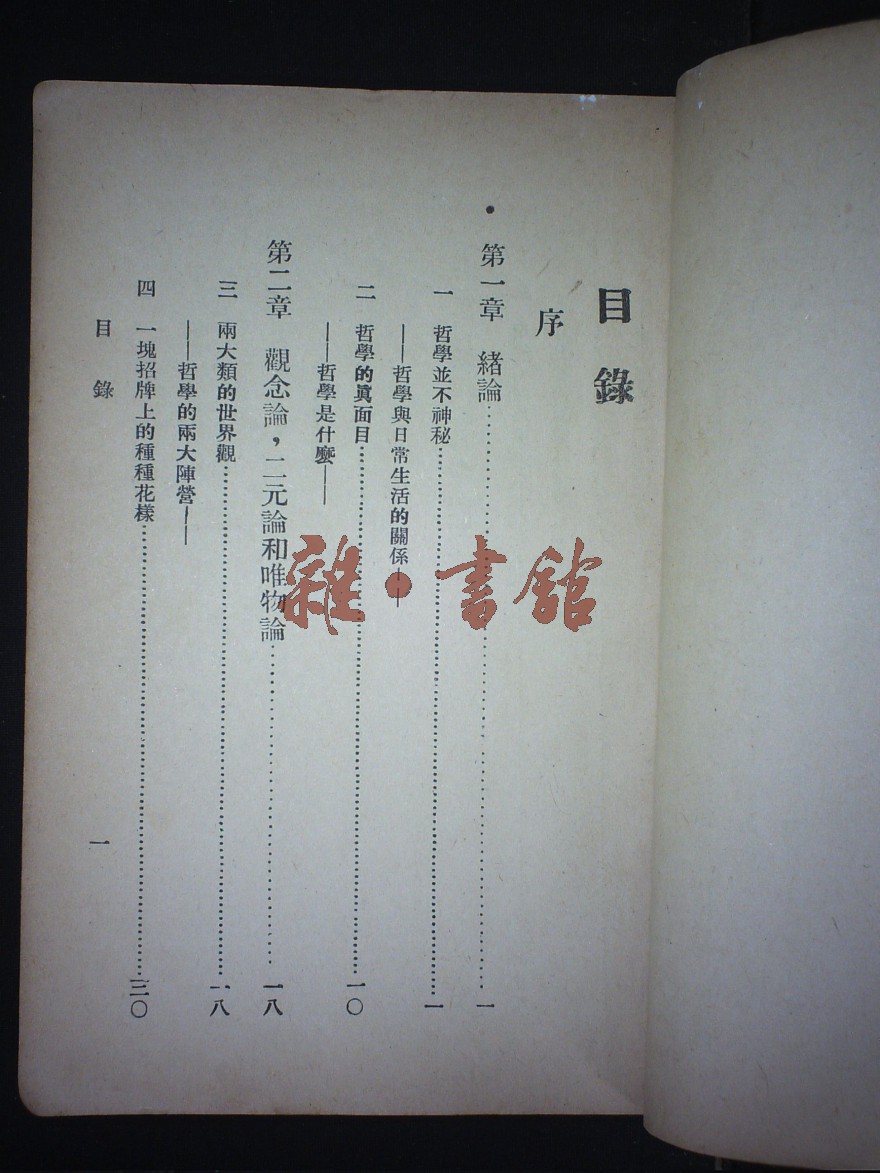 目錄
序
第一章 緒論……一
一 哲學並不神秘……一
——哲學與日常生活的關係——
二 哲學的眞面目……一〇
——哲學是什麼——
第二章 觀念論，二元論和唯物論……一八
三 兩大類的世界觀……一八
——哲學的兩大陣營——
四 一塊招牌上的種種花樣……三〇
目錄
一
雜·書館